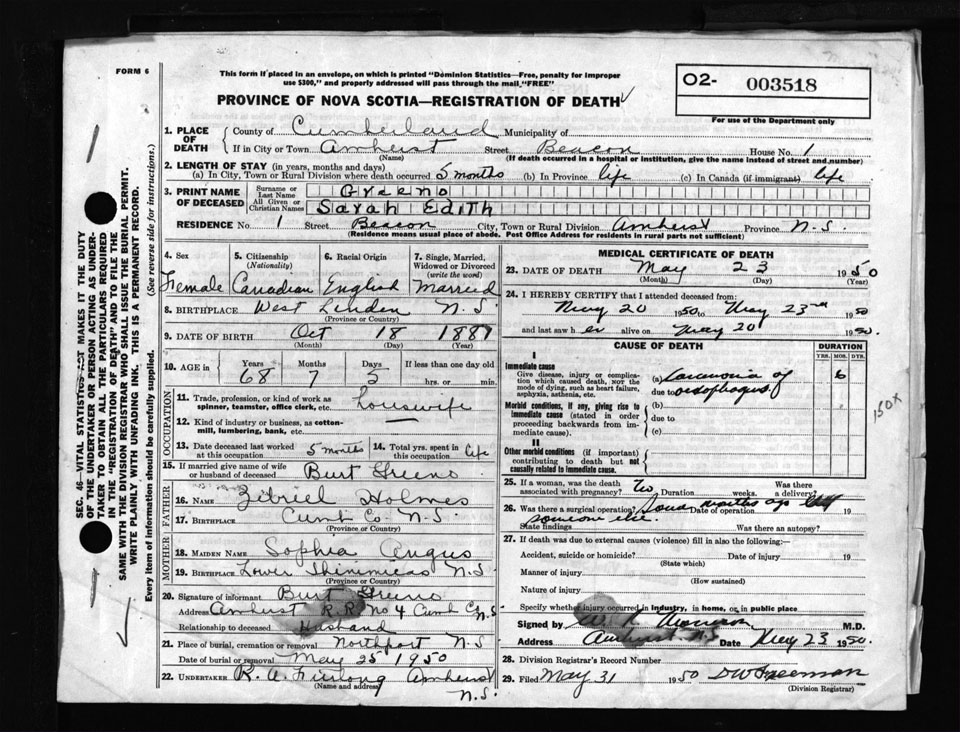 FORM 6
This form if placed in an envelope, on which is printed "Dominion Statistics—Free, penalty for improper
use $300," and properly addressed will pass through the mail "FREE"
O2- 003518
PROVINCE OF NOVA SCOTIA—REGISTRATION OF DEATH
For use of the Department only
1. PLACE OF DEATH
County of Cumberland Municipality of
If in City or Town Amherst Street Beacon House No. 1
(Name) (If death occurred in a hospital or institution, give the name instead of street and number)
2. LENGTH OF STAY (in years, months and days)
(a) In City, Town or Rural Division where death occurred 5 months (b) In Province life (c) In Canada (if immigrant) life
3. PRINT NAME OF DECEASED
Surname or Last Name Greeno
All Given or Christian Names Sarah Edith
RESIDENCE No. 1 Street Beacon City, Town or Rural Division Amherst Province N.S.
(Residence means usual place of abode. Post Office Address for residents in rural parts not sufficient)
4. Sex 5. Citizenship (Nationality) 6. Racial Origin 7. Single, Married, Widowed or Divorced (write the word)
Female Canadian English Married
8. BIRTHPLACE West Linden N.S.
(Province or Country)
9. DATE OF BIRTH Oct 18 1881
(Month) (Day) (Year)
10. AGE IN Years Months Days If less than one day old
68 7 5 hrs. or min.
OCCUPATION
11. Trade, profession, or kind of work as spinner, teamster, office clerk, etc. Housewife
12. Kind of industry or business, as cotton-mill, lumbering, bank, etc.
13. Date deceased last worked at this occupation 5 months 14. Total yrs. spent in this occupation life
15. If married give name of wife or husband of deceased Burt Greeno
FATHER
16. NAME Holmes
17. BIRTHPLACE Cumb. Co. N.S.
(Province or Country)
MOTHER
18. MAIDEN NAME Sophia Angus
19. BIRTHPLACE Lower N.S.
(Province or Country)
20. Signature of informant Burt Greeno
Address Amherst R.R. No 4 Cumb Co N.S.
Relationship to deceased Husband
21. Place of burial, cremation or removal Northport N.S
Date of burial or removal May 25 1950
22. UNDERTAKER R. A. Furlong Amherst
(Name and address) N.S.
MEDICAL CERTIFICATE OF DEATH
23. DATE OF DEATH May 23 1950
(Month) (Day) (Year)
24. I HEREBY CERTIFY that I attended deceased from
May 20 1950 to May 23rd
and last saw her alive on May 20 1950.
CAUSE OF DEATH
DURATION
YRS. MOS. DYS.
I
Immediate cause
Give disease, injury or complication which caused death, NOT the mode of dying, such as heart failure, asphyxia, asthenia, etc.
(a) Carcinoma of 6
due to oesophagus
150X
Morbid conditions, if any, giving rise to immediate cause (stated in order proceeding backwards from immediate cause).
(b)
due to
(c)
II
Other morbid conditions (if important) contributing to death but not causally related to immediate cause.
25. If a woman, was the death associated with pregnancy? No Duration weeks. Was there a delivery?
26. Was there a surgical operation? months ago Date of operation 19
State findings someone else. Was there an autopsy?
27. If death was due to external causes (violence) fill in also the following:—
Accident, suicide or homicide? Date of injury 19
(State which)
Manner of injury
(How sustained)
Nature of injury
Specify whether injury occurred in industry, in home, or in public place
Signed by M.D.
Address Amherst N.S Date May 23 1950.
28. Division Registrar's Record Number
29. Filed May 31 1950 DW Freeman
(Division Registrar)
SEC. 46—VITAL STATISTICS ACT MAKES IT THE DUTY
OF THE UNDERTAKER OR PERSON ACTING AS UNDER-
TAKER TO OBTAIN ALL THE PARTICULARS REQUIRED
IN THE "REGISTRATION OF DEATH" AND TO FILE THE
SAME WITH THE DIVISION REGISTRAR WHO SHALL ISSUE THE BURIAL PERMIT.
WRITE PLAINLY WITH UNFADING INK. THIS IS A PERMANENT RECORD.
Every item of information should be carefully supplied. (See reverse side for instructions.)